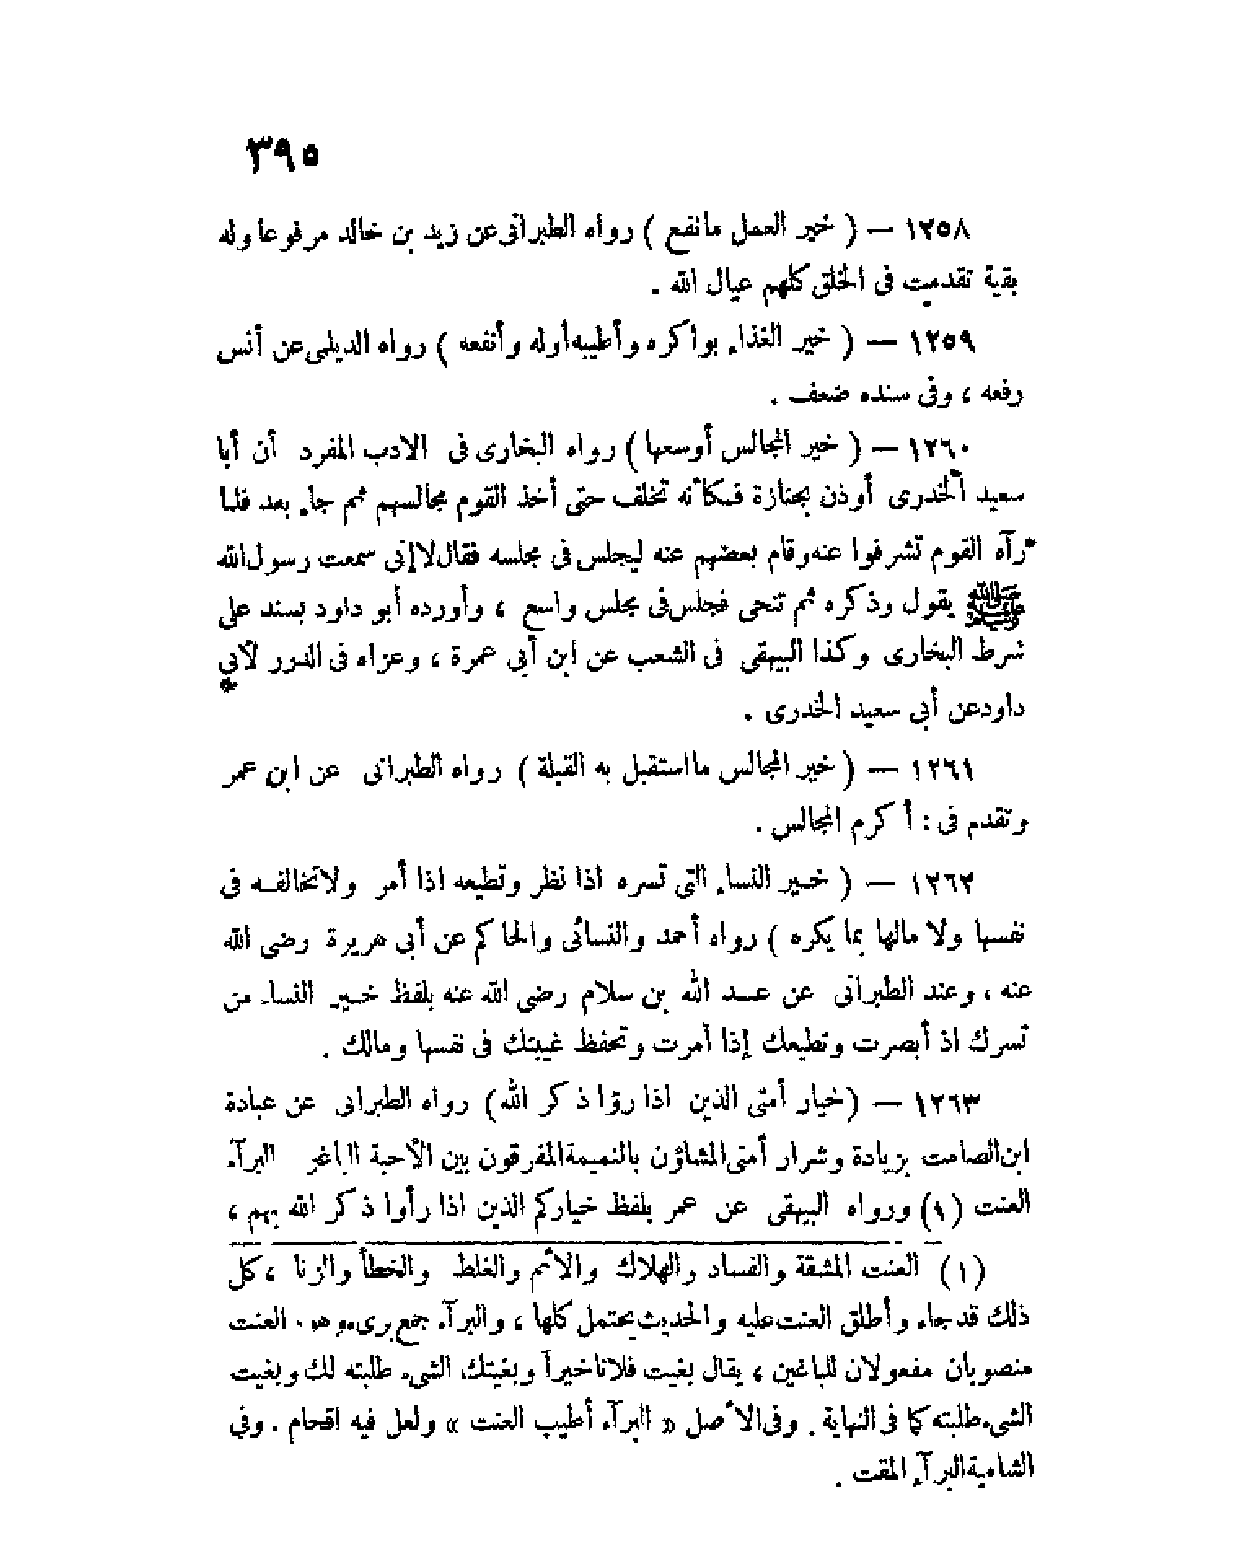 ٣٩٥
١٢٥٨ — ( خير العمل مانفع ) رواه الطبرانى عن زيد بن خالد مرفوعا وله
بقية تقدمت فى الخلق كلهم عيال الله .
١٢٥٩ — ( خير الغذاء بواكره وأطيبه أوله وأنفعه ) رواه الديلمى عن أنس
رفعه ، وفى سنده ضعف .
١٢٦٠ — ( خير المجالس أوسعها ) رواه البخارى فى الادب المفرد أن أبا
سعيد الخدرى أوذن بجنازة فكأنه تخلف حتى أخذ القوم مجالسهم ثم جاء بعد فلما
رآه القوم تشرفوا عنه وقام بعضهم عنه ليجلس فى مجلسه فقال لا إنى سمعت رسول الله
ﷺ يقول وذكره ثم تنحى فجلس فى مجلس واسع ، وأورده أبو داود بسند على
شرط البخارى وكذا البيهقى فى الشعب عن ابن أبي عمرة ، وعزاه فى الدرر لابي
داود عن أبي سعيد الخدرى .
١٢٦١ — ( خير المجالس ما استقبل به القبلة ) رواه الطبرانى عن ابن عمر
وتقدم فى : أكرم المجالس .
١٢٦٢ — ( خير النساء التى تسره اذا نظر وتطيعه اذا أمر ولا تخالفه فى
نفسها ولا مالها بما يكره ) رواه أحمد والنسائى والحاكم عن أبى هريرة رضى الله
عنه ، وعند الطبرانى عن عبد الله بن سلام رضى الله عنه بلفظ خير النساء من
تسرك اذ أبصرت وتطيعك إذا أمرت وتحفظ غيبتك فى نفسها ومالك .
١٢٦٣ — (خيار أمتى الذين اذا رؤا ذكر الله) رواه الطبرانى عن عبادة
ابن الصامت بزيادة وشرار أمتى المشاؤن بالنميمة المفرقون بين الأحبة الباغون البرآء
العنت (١) ورواه البيهقى عن عمر بلفظ خياركم الذين اذا رأوا ذكر الله بهم ،
(١) العنت المشقة والفساد والهلاك والاثم والغلط والخطأ والزنا ، كل
ذلك قد جاء وأطلق العنت عليه والحديث يحتمل كلها ، والبرآء جمع برىء وهو والعنت
منصوبان مفعولان للباغين ، يقال بغيت فلانا خيراً وبغيتك الشىء طلبته لك وبغيت
الشىء طلبته كما فى النهاية . وفى الأصل « البرآء أطيب العنت » ولعل فيه اقحام . وفى
الشامية البرآء المقت .